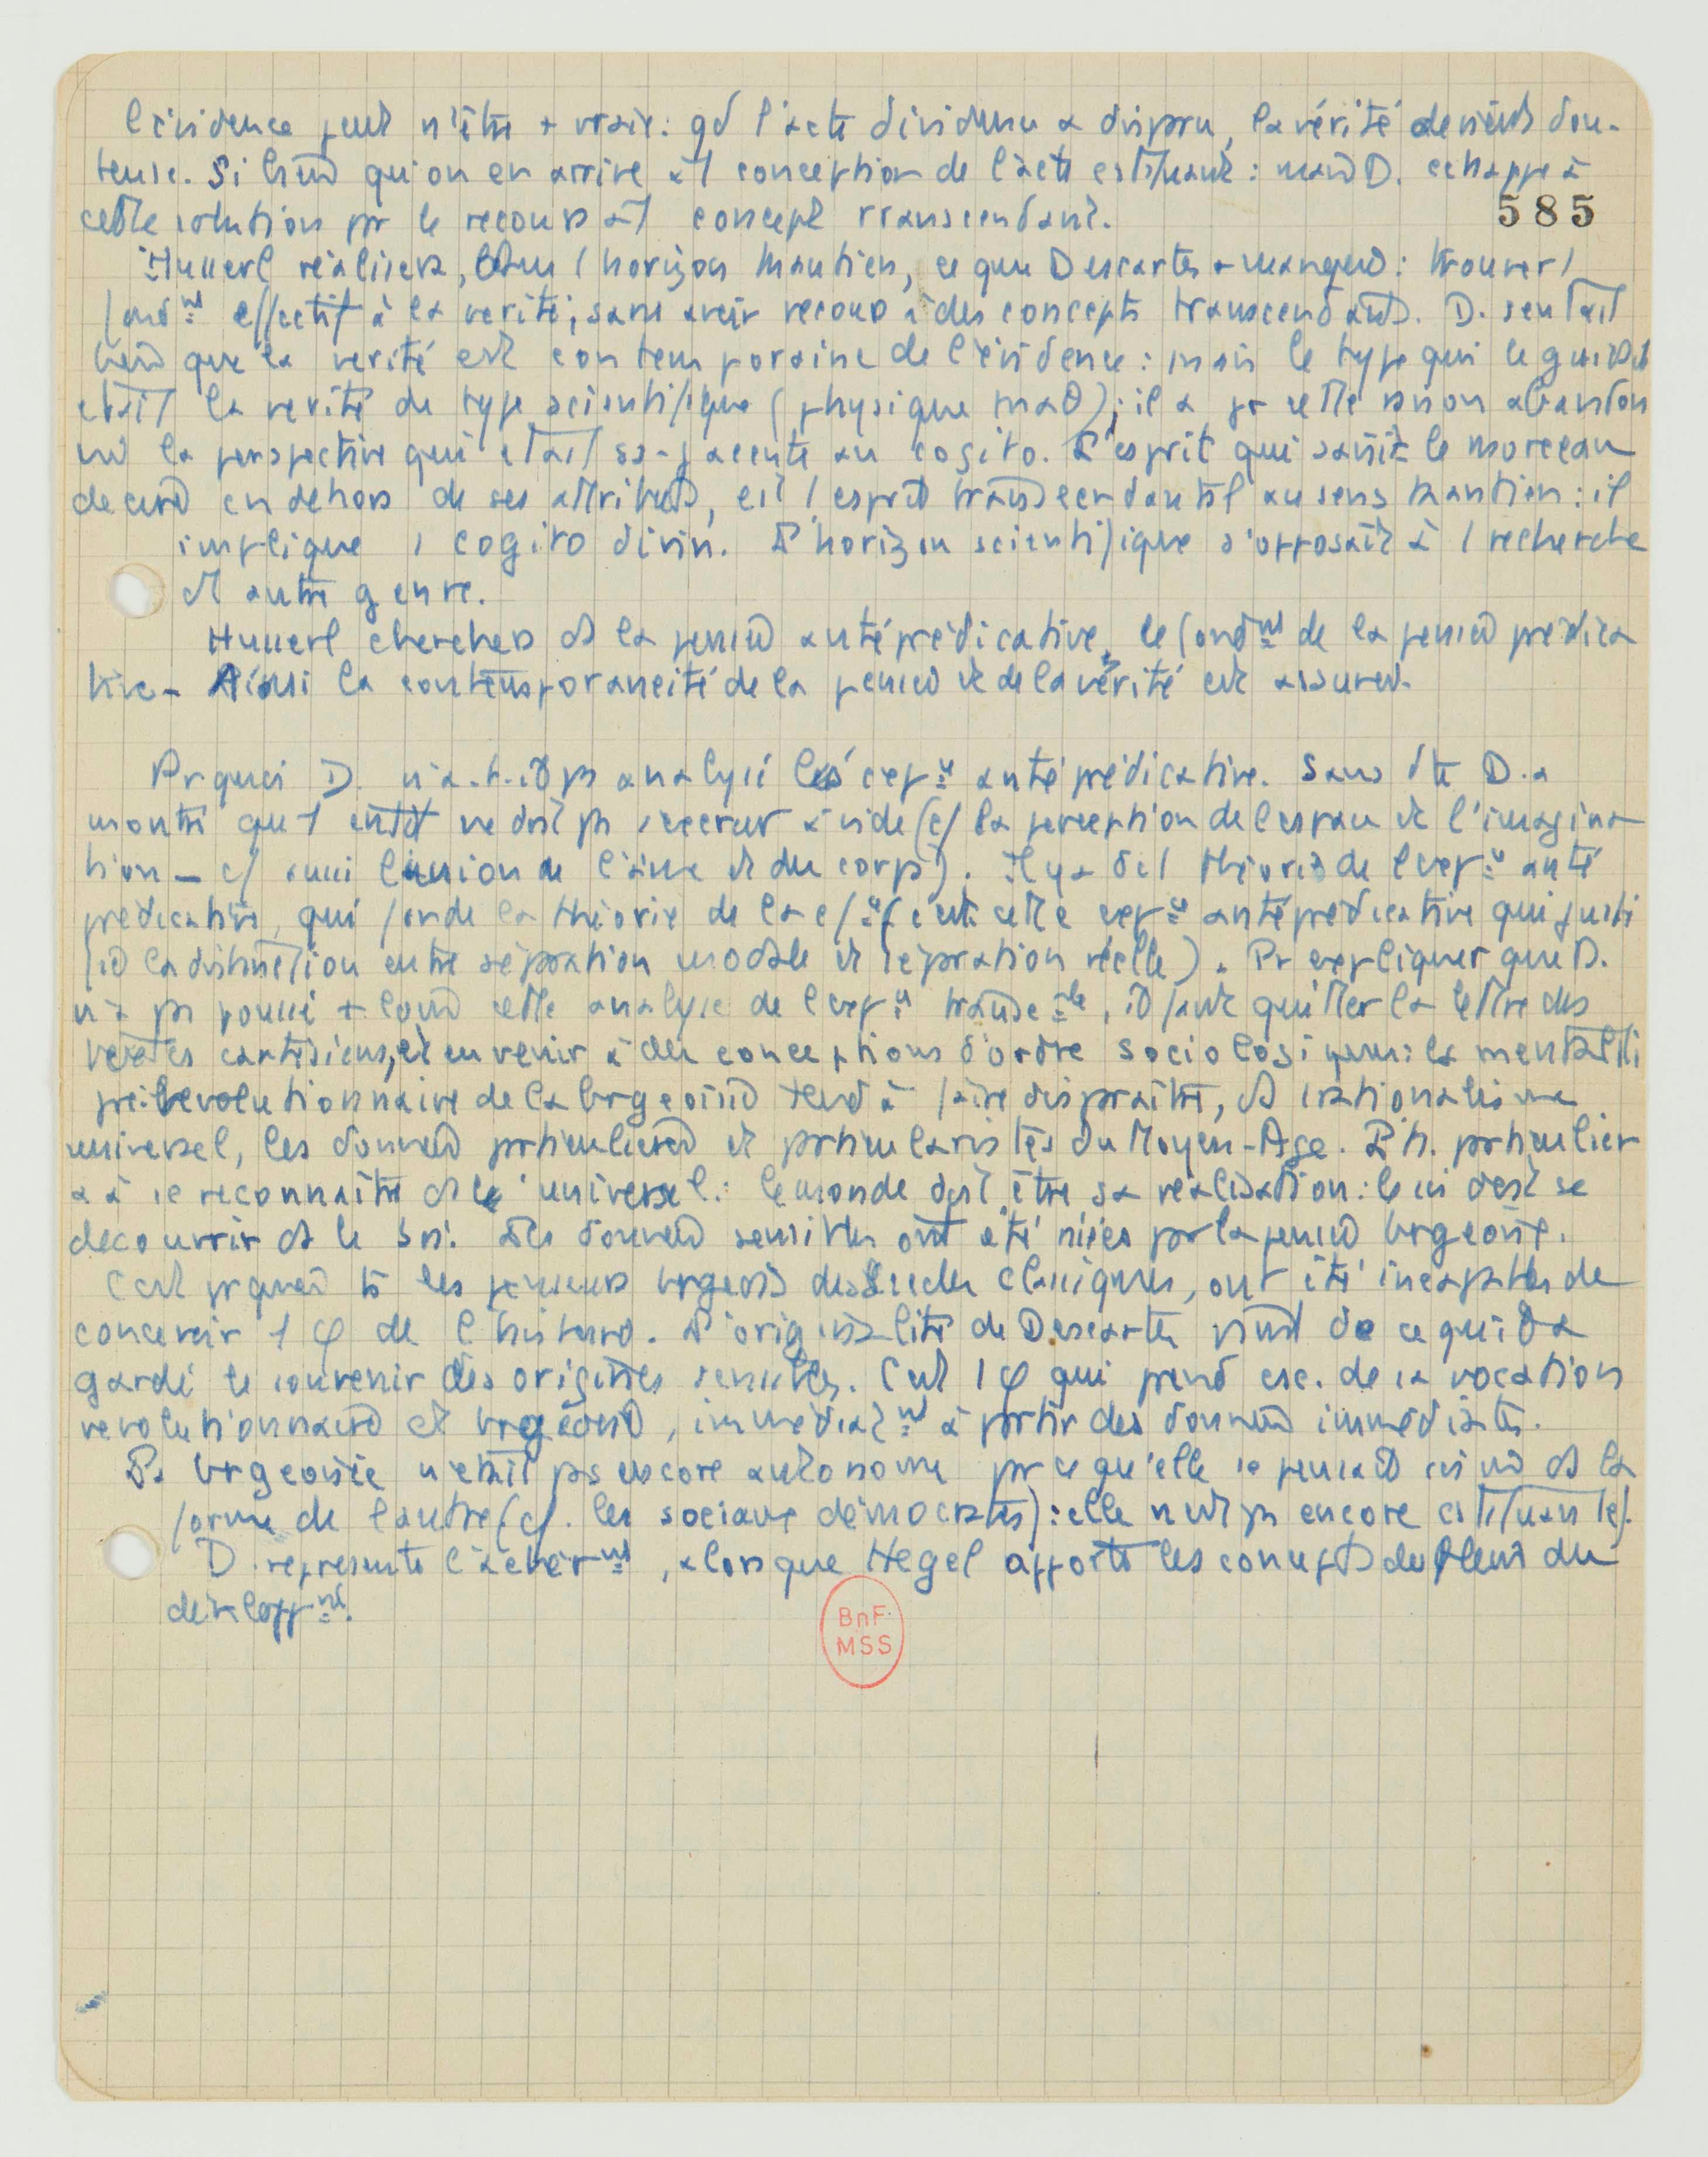 l'évidence peut n'être + vraie : qd l'acte d'évidence a disparu, la vérité devient dou-
teuse. Si bien qu'on en arrive à 1 conception de l'acte : mais D. échappe à
cette solution pr le recours à 1 concept transcendant.
585
Husserl réalisera, 1 horizon kantien, ce que Descartes a manqué : trouver 1
fondnt effectif à la vérité, sans avoir recours à des concepts transcendants. D. sentait
bien que la vérité est contemporaine de l'évidence : mais le type qui le guidait
était la vérité de type scientifique (physique math) ; il a pr cette raison abandon
né la perspective qui était ss-jacente au cogito. L'esprit qui saisit le morceau
de cire en dehors de ses attributs, est l'esprit transcendantal au sens kantien : il
implique 1 cogito divin. L'horizon scientifique s'opposait à 1 recherche
d'1 autre genre.
Husserl cherchera ds la pensée antéprédicative, le fondnt de la pensée prédica
tive - Ainsi la contemporanéité de la pensée et de la vérité est assurée.
Prquoi D. n'a-t-il ps analysé l'expce antéprédicative. Sans dte D. a
montré que l' ne doit ps s'exercer à vide (cf la perception de l'espace et l'imagina
tion - cf aussi l'union de l'âme et du corps). Il y a dc 1 théorie de l'expce anté
prédicative, qui fonde la théorie de la (c'est cette expce antéprédicative qui justi
fie la distinction entre séparation modale et séparation réelle). Pr expliquer que D.
n'a ps poussé + loin cette analyse de l'expce transcle, il faut quitter la lettre des
textes cartésiens, et en venir à des conceptions d'ordre sociologique : la mentalité
prérévolutionnaire de la brgeoisie tend à faire disparaître, ds rationalisme
universel, les données prticulières et prticularistes du Moyen-Age. L'h. prticulier
a à se reconnaître ds l'universel : le monde doit être sa réalisation : le moi doit se
découvrir ds le Soi. Les données sensibles ont été niées pr la pensée brgeoise.
C'est prquoi ts les penseurs brgeois des siècles classiques, ont été incapables de
concevoir 1 φ de l'histoire. L'originalité de Descartes vient de ce qu'il a
gardé le souvenir des origines sensibles. C'est 1 φ qui prend csc. de sa vocation
révolutionnaire et brgeoise, immédiatnt à prtir des données immédiates.
La brgeoisie n'était ps encore autonome prce qu'elle se pensait ds la
forme de l'autre (cf. les sociaux démocrates) : elle n'est ps encore cstituante.
D. représente l'achèvnt, alors que Hegel apporte les concepts du plein du
développnt.
BnF
MSS